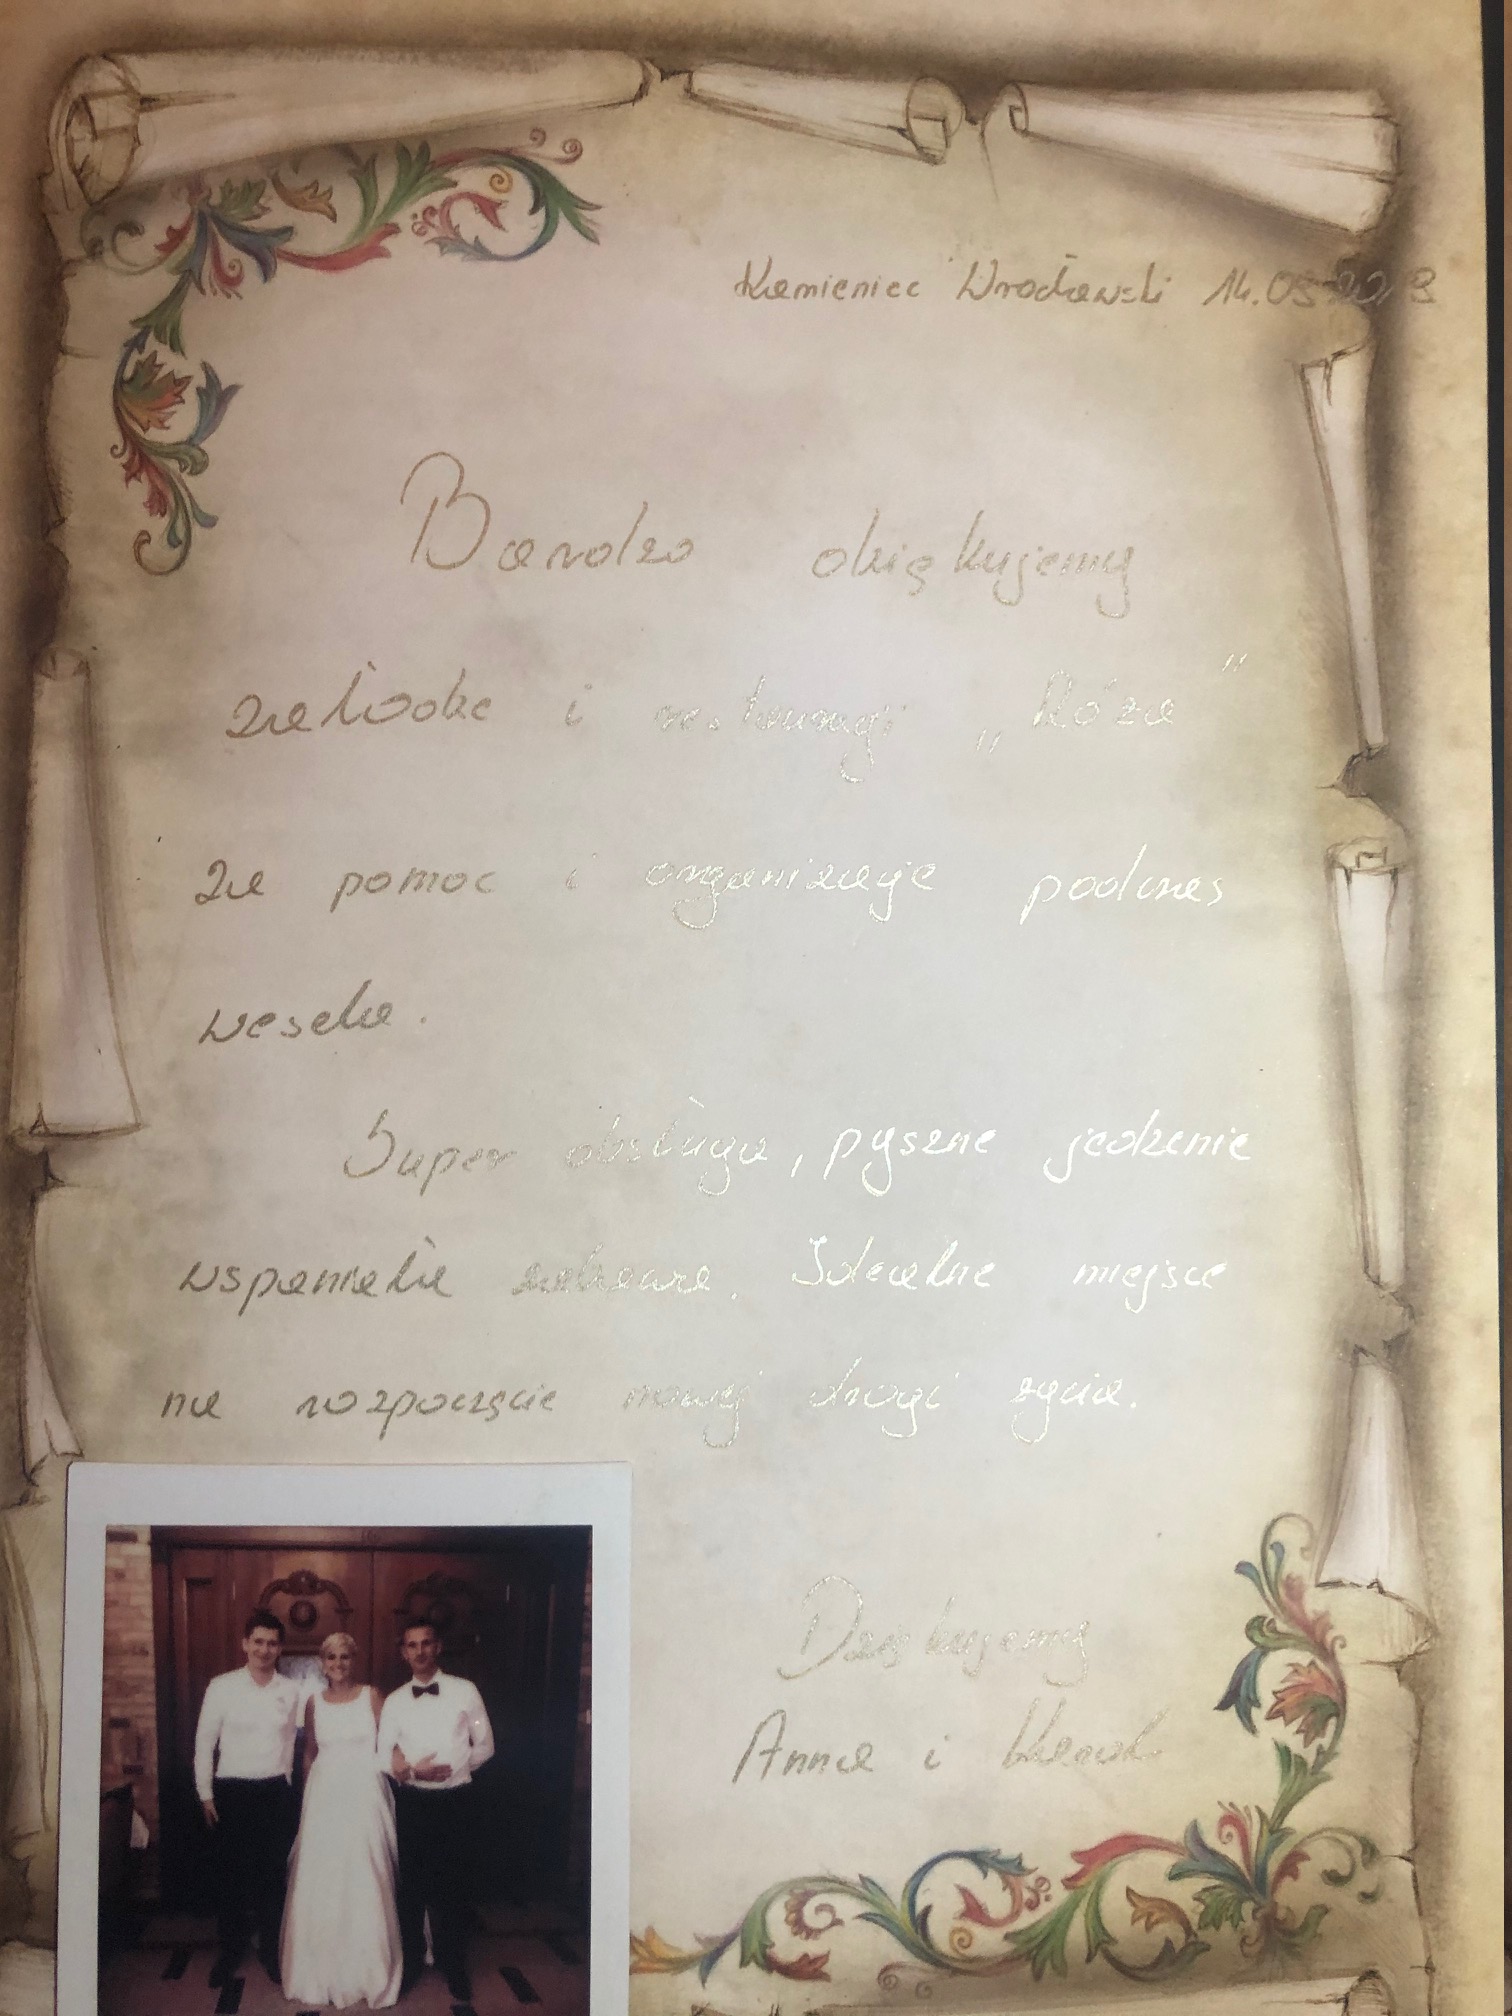 Kamieniec Wrocławski 14.09.2019
Bardzo dziękujemy
załodze i restauracji „Róża”
za pomoc i organizację podczas
wesela.
Super obsługa, pyszne jedzenie
wspaniała zabawa. Idealne miejsce
na rozpoczęcie nowej drogi życia.
Dziękujemy
Anna i Karol